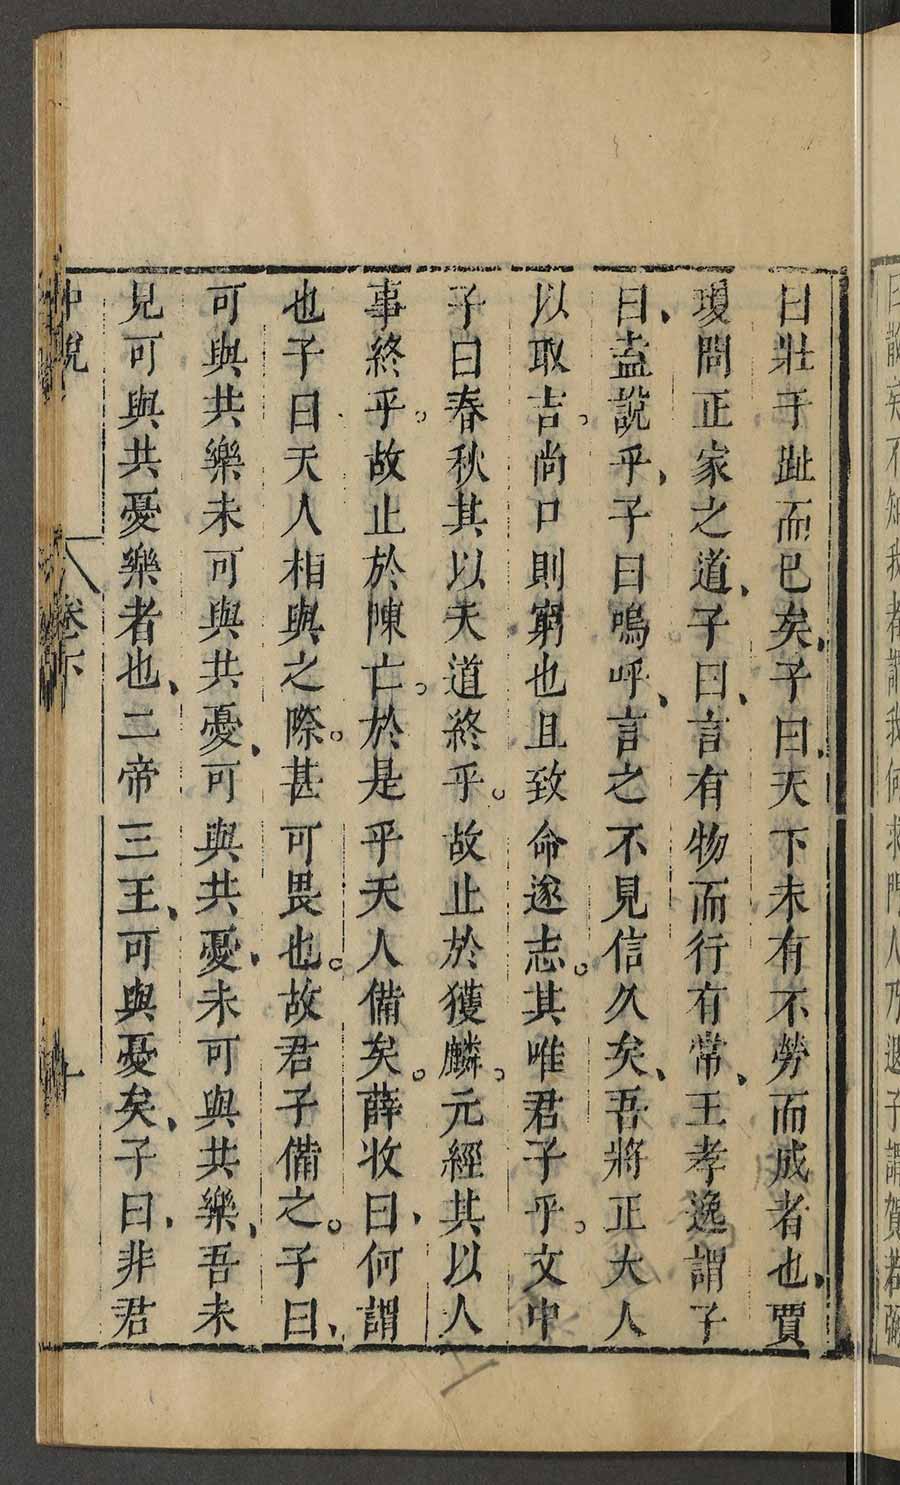 曰散矣不知我者謂我何求門人乃退子謂賀若弼
曰壯于趾而已矣、子曰、天下未有不勞而成者也、賈
瓊問正家之道、子曰、言有物而行有常、王孝逸謂子
曰、盍說乎、子曰嗚呼、言之不見信久矣、吾將正大人
以取吉。尚口則窮也且致命遂志。其唯君子乎。文中
子曰春秋其以天道終乎。故止於獲麟。元經其以人
事終乎。故止於陳亡。於是乎天人備矣。薛收曰、何謂
也子曰天人相與之際。甚可畏也。故君子備之。子曰、
可與共樂未可與共憂、可與共憂、未可與共樂、吾未
見可與共憂樂者也、二帝三王、可與憂矣、子曰、非君
中說 卷下 十